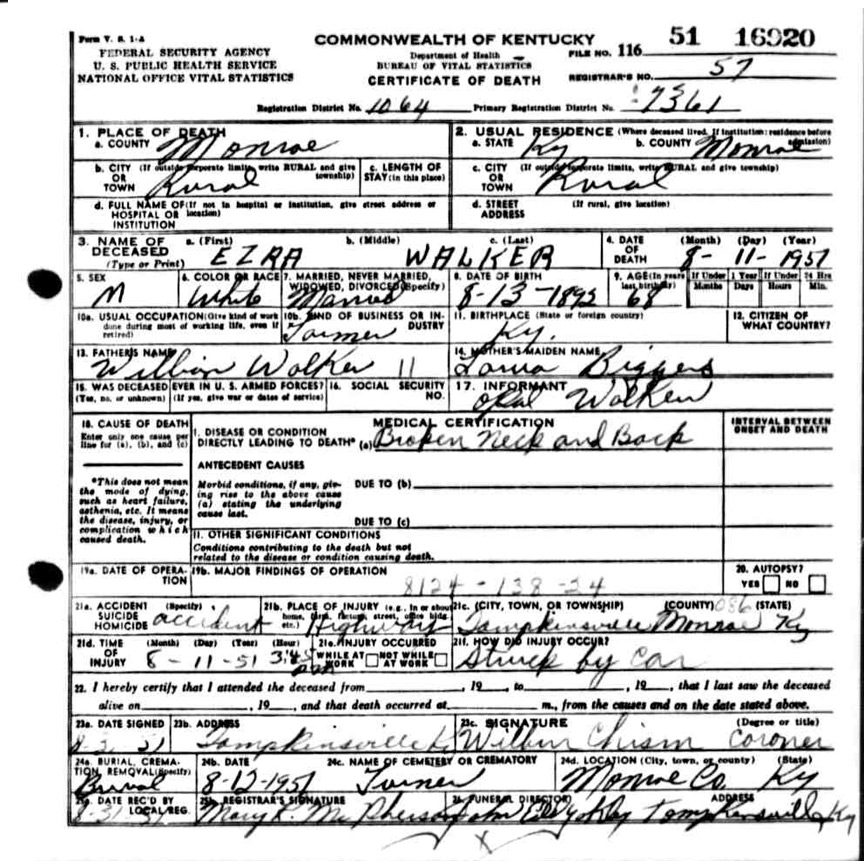 Form V. S. 1-A
FEDERAL SECURITY AGENCY
U. S. PUBLIC HEALTH SERVICE
NATIONAL OFFICE VITAL STATISTICS
COMMONWEALTH OF KENTUCKY
Department of Health
BUREAU OF VITAL STATISTICS
CERTIFICATE OF DEATH
FILE NO. 116 51 16920
REGISTRAR'S NO. 57
Registration District No. 1064 Primary Registration District No. 7361
1. PLACE OF DEATH
a. COUNTY Monroe
2. USUAL RESIDENCE (Where deceased lived. If institution: residence before admission)
a. STATE Ky b. COUNTY Monroe
b. CITY (If outside corporate limits, write RURAL and give township)
OR TOWN Rural
c. LENGTH OF STAY (in this place)
c. CITY (If outside corporate limits, write RURAL and give township)
OR TOWN Rural
d. FULL NAME OF (If not in hospital or institution, give street address or location)
HOSPITAL OR INSTITUTION
d. STREET ADDRESS (If rural, give location)
3. NAME OF DECEASED (Type or Print)
a. (First) b. (Middle) c. (Last)
EZRA WALKER
4. DATE OF DEATH (Month) (Day) (Year)
8-11-1951
5. SEX
M
6. COLOR OR RACE
White
7. MARRIED, NEVER MARRIED, WIDOWED, DIVORCED (Specify)
Married
8. DATE OF BIRTH
8-13-1893
9. AGE (In years last birthday) If Under 1 Year If Under 24 Hrs
Months Days Hours Min.
68
10a. USUAL OCCUPATION (Give kind of work done during most of working life, even if retired)
10b. KIND OF BUSINESS OR INDUSTRY
Farmer
11. BIRTHPLACE (State or foreign country)
Ky.
12. CITIZEN OF WHAT COUNTRY?
13. FATHER'S NAME
Walker
14. MOTHER'S MAIDEN NAME
Biggers
15. WAS DECEASED EVER IN U. S. ARMED FORCES?
(Yes, no, or unknown) (If yes, give war or dates of service)
16. SOCIAL SECURITY NO.
17. INFORMANT
Opal Walker
18. CAUSE OF DEATH
Enter only one cause per line for (a), (b), and (c)
*This does not mean the mode of dying, such as heart failure, asthenia, etc. It means the disease, injury, or complication which caused death.
MEDICAL CERTIFICATION
INTERVAL BETWEEN ONSET AND DEATH
I. DISEASE OR CONDITION
DIRECTLY LEADING TO DEATH* (a) Broken Neck and Back
ANTECEDENT CAUSES
Morbid conditions, if any, giving rise to the above cause (a) stating the underlying cause last.
DUE TO (b)
DUE TO (c)
II. OTHER SIGNIFICANT CONDITIONS
Conditions contributing to the death but not related to the disease or condition causing death.
19a. DATE OF OPERATION
19b. MAJOR FINDINGS OF OPERATION
8124-138-24
20. AUTOPSY?
YES NO
21a. ACCIDENT SUICIDE HOMICIDE (Specify)
accident
21b. PLACE OF INJURY (e.g., in or about home, farm, factory, street, office bldg., etc.)
Highway
21c. (CITY, TOWN, OR TOWNSHIP) (COUNTY) (STATE)
086
Tompkinsville Monroe Ky
21d. TIME OF INJURY (Month) (Day) (Year) (Hour)
8-11-51
21e. INJURY OCCURRED
WHILE AT WORK NOT WHILE AT WORK
21f. HOW DID INJURY OCCUR?
Struck by car
22. I hereby certify that I attended the deceased from , 19 , to , 19 , that I last saw the deceased
alive on , 19 , and that death occurred at m., from the causes and on the date stated above.
23a. DATE SIGNED
23b. ADDRESS
Tompkinsville
23c. SIGNATURE (Degree or title)
Wilbur Chism Coroner
24a. BURIAL, CREMATION, REMOVAL (Specify)
Burial
24b. DATE
8-12-1951
24c. NAME OF CEMETERY OR CREMATORY
Turner
24d. LOCATION (City, town, or county) (State)
Monroe Co. Ky
25a. DATE REC'D BY LOCAL REG.
8-31-51
25b. REGISTRAR'S SIGNATURE
Mary K. McPherson
26. FUNERAL DIRECTOR ADDRESS
Yokley Tompkinsville Ky